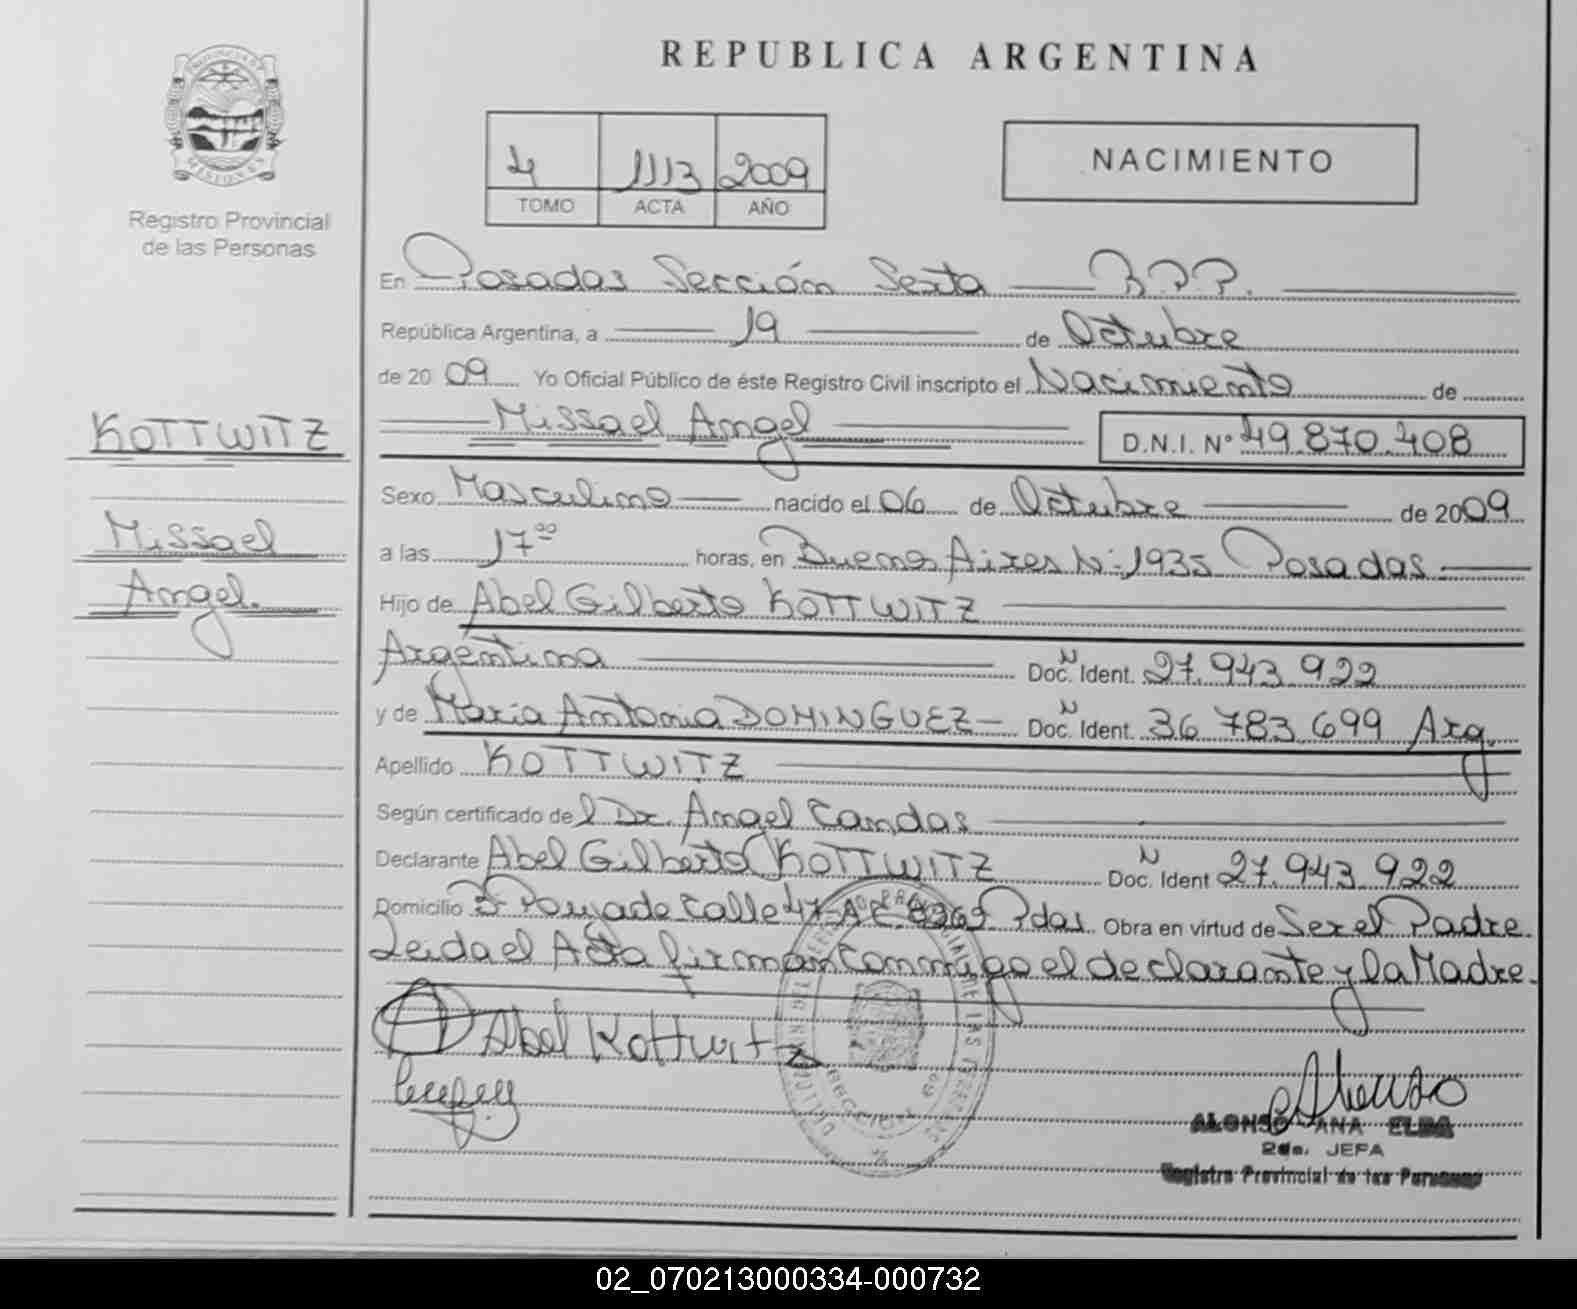 REPUBLICA ARGENTINA
PROVINCIA DE
MISIONES
Registro Provincial
de las Personas
4 1113 2009
TOMO ACTA AÑO
NACIMIENTO
En Posadas Sección Sexta R.P.P.
República Argentina, a 19 de Octubre
de 2009 Yo Oficial Público de éste Registro Civil inscripto el Nacimiento de
Missael Angel D.N.I. Nº 49.870.408
KOTTWITZ
Missael
Angel.
Sexo Masculino nacido el 06 de Octubre de 2009
a las 17ºº horas, en Buenos Aires Nº 1935 Posadas
Hijo de Abel Gilberto KOTTWITZ
Argentina Doc. N Ident. 27.943.922
y de Maria Antonia DOMINGUEZ Doc. N Ident. 36.783.699 Arg.
Apellido KOTTWITZ
Según certificado del Dr. Angel Candas
Declarante Abel Gilberto KOTTWITZ Doc. N Ident 27.943.922
Domicilio Calle 47 Pdas. Obra en virtud de Ser el Padre.
Leida el Acta firman conmigo el declarante y la Madre.
Abel Kottwitz
SECCION 6º
ALONSO ANA ELBA
2da. JEFA
Registro Provincial de las Personas
02_070213000334-000732